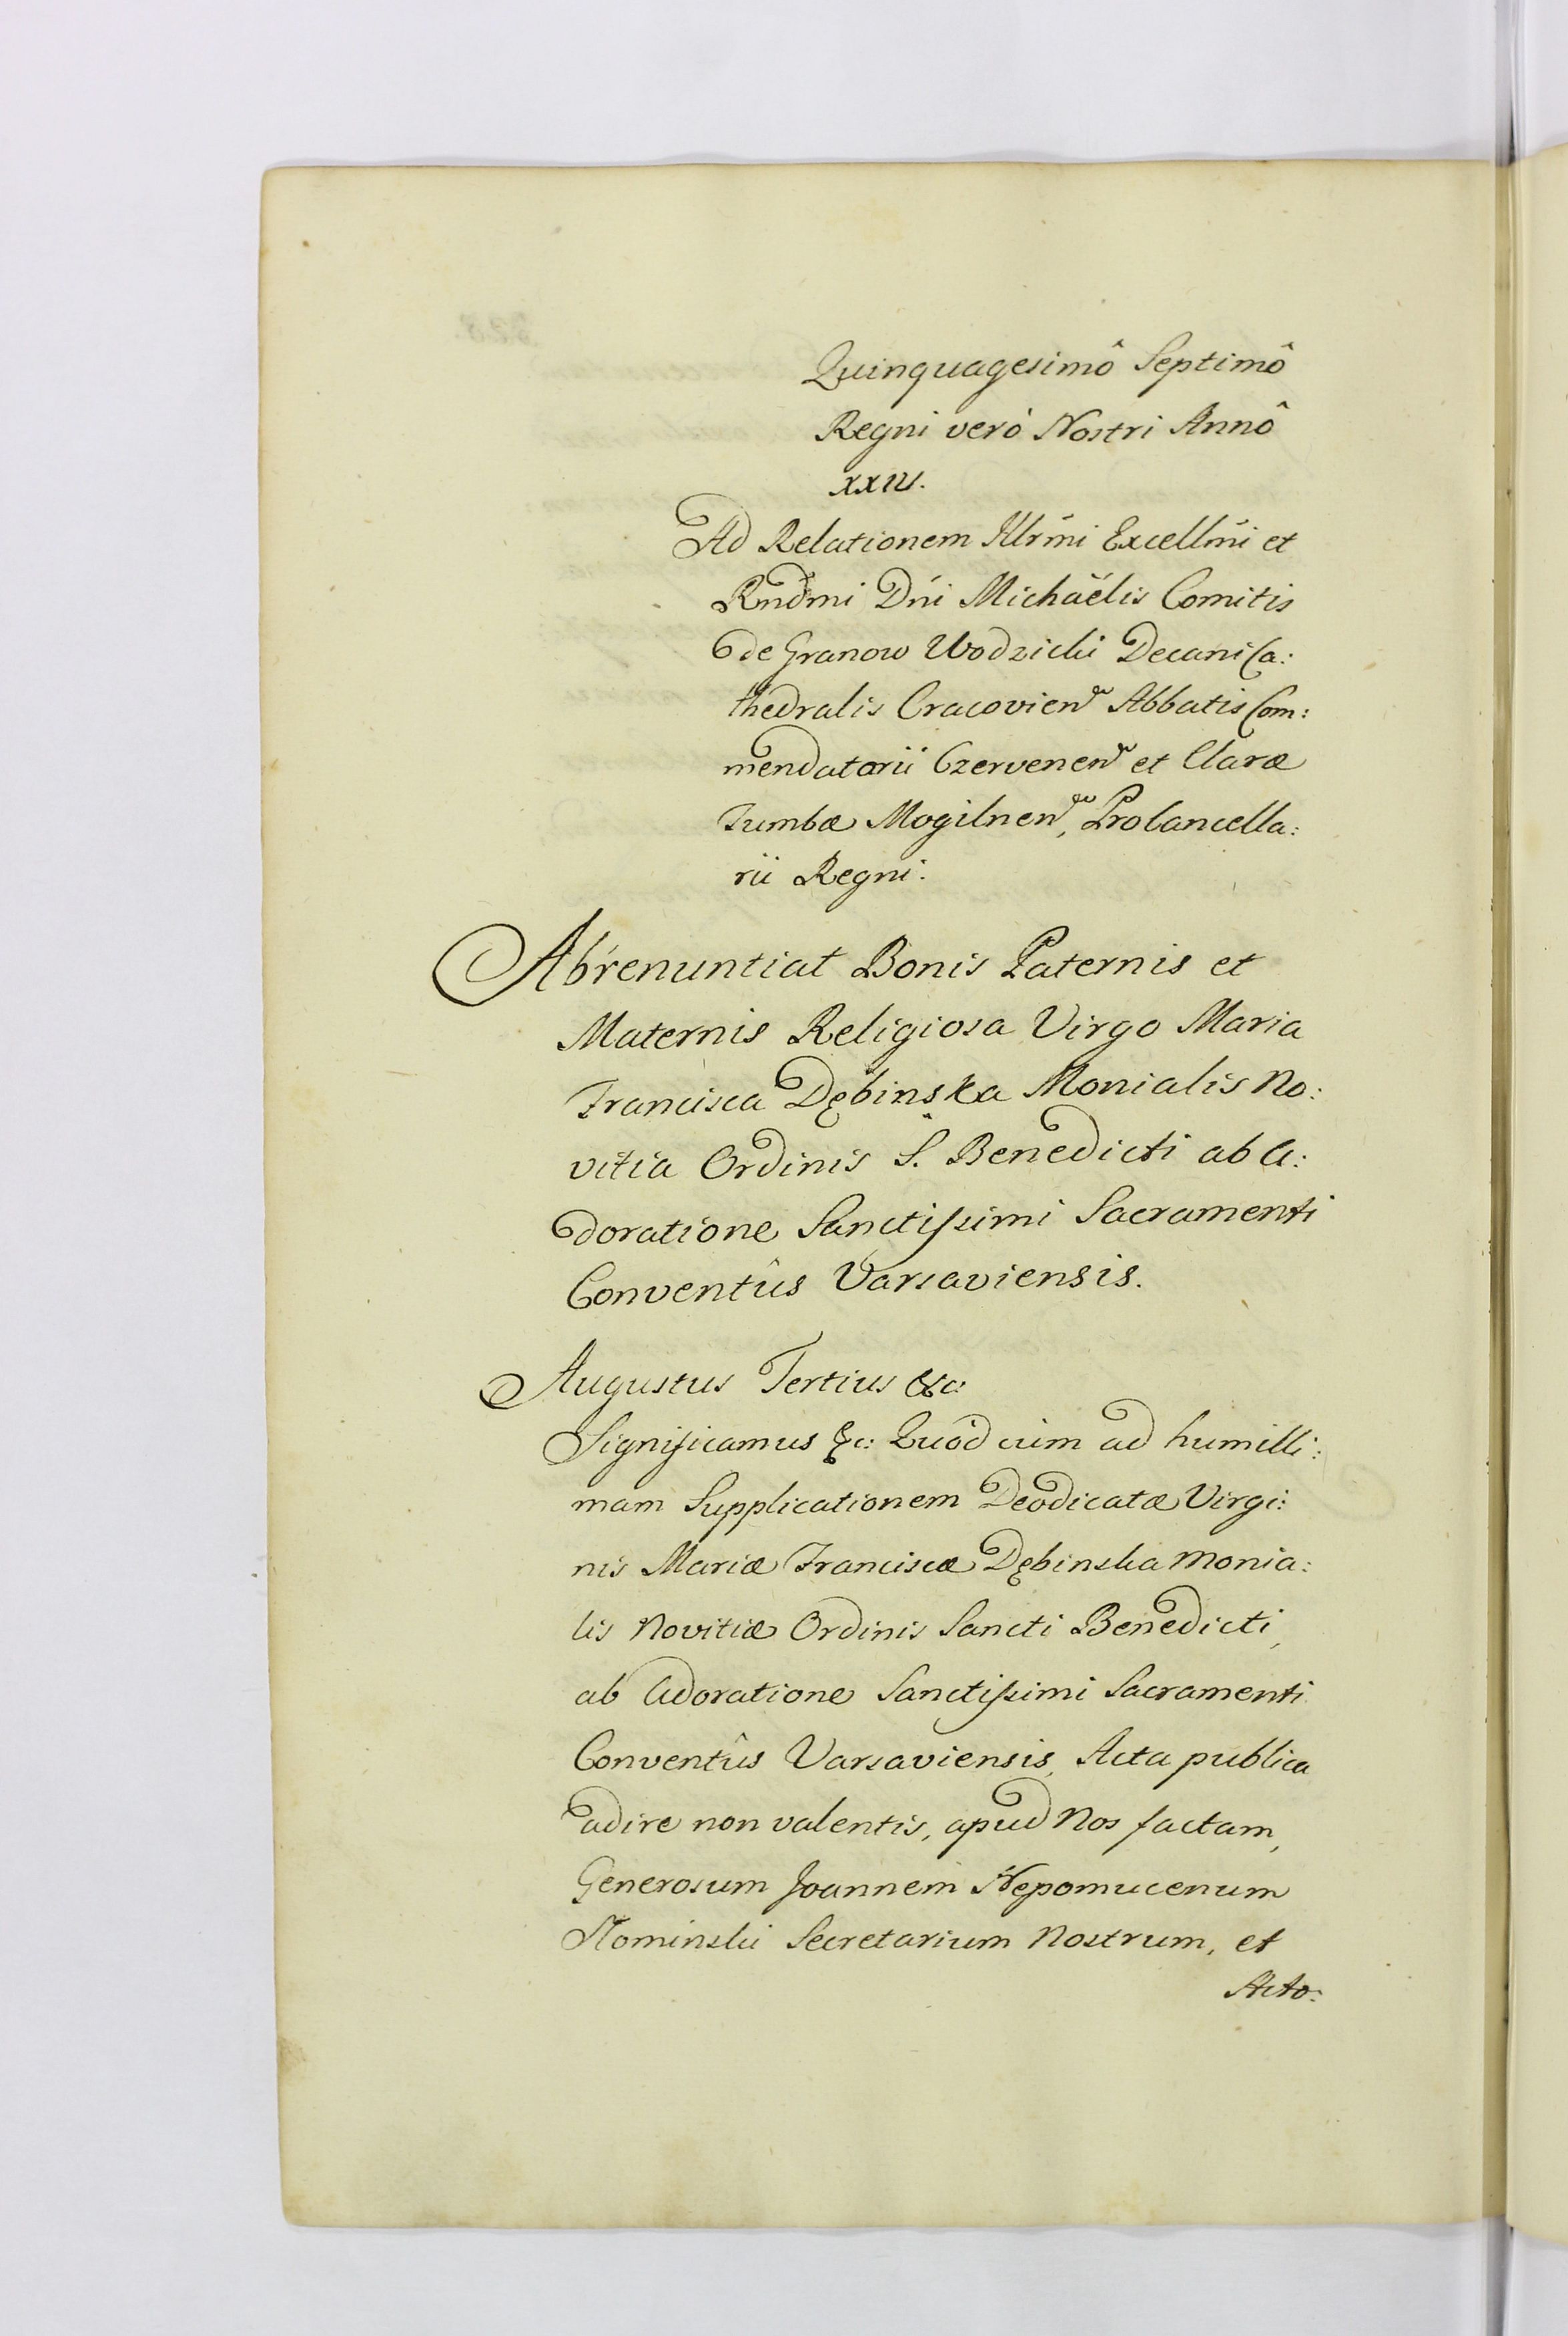 Quinquagesimô Septimô
Regni verò Nostri Annô
XXIV.
Ad Relationem Illrm̃i Excellm̃i et
Rndm̃i Dńi Michaëlis Comitis
de Granow Wodzicki Decani Ca:
thedralis Cracovien Abbatis Com:
mendatarii Czervenen et Claræ
Tumbæ Mogilnen, ProCancella:
rii Regni.
Abrenuntiat Bonis Paternis et
Maternis Religiosa Virgo Maria
Francisca Dębinska Monialis No:
vitia Ordinis S. Benedicti ab A:
doratione Sanctissimi Sacramenti
Conventûs Varsaviensis.
Augustus Tertius &c:
Significamus &c: Quòd cùm ad humilli:
mam Supplicationem Deodicatæ Virgi:
nis Mariæ Franciscæ Dębinska Monia:
lis Novitiæ Ordinis Sancti Benedicti,
ab Adoratione Sanctissimi Sacramenti
Conventûs Varsaviensis, Acta publica
adire non valentis, apud Nos factam,
Generosum Joannem Nepomucenum
Słominski Secretarium Nostrum, et
Acto: